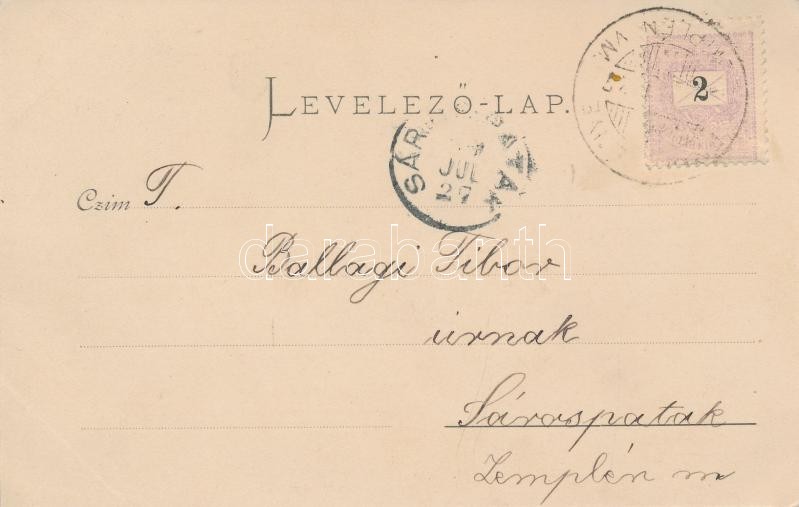 LEVELEZŐ-LAP.
2
JUL
27
Czim T.
Ballagi Tibor
úrnak
Sárospatak
Zemplén m
darabanth